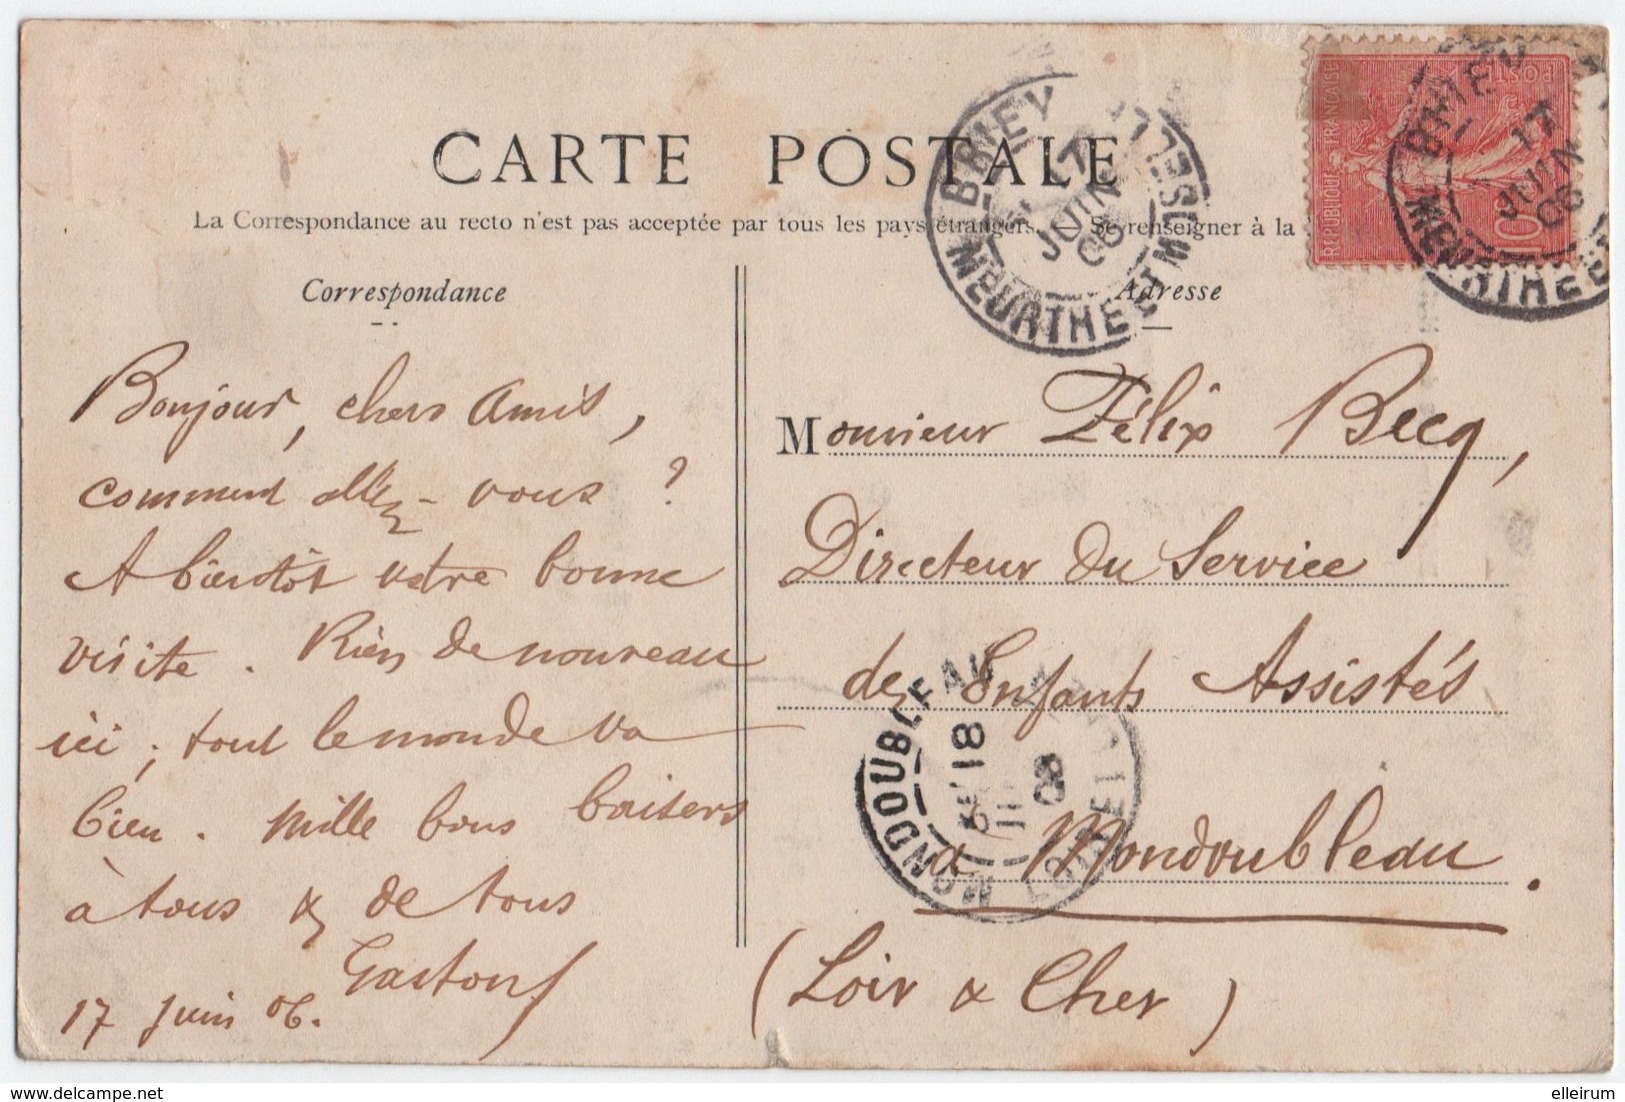 CARTE POSTALE
La Correspondance au recto n'est pas acceptée par tous les pays étrangers. — Se renseigner à la
Correspondance
Bonjour, chers amis,
comment allez-vous ?
A bientôt votre bonne
visite. Rien de nouveau
ici ; tout le monde va
bien. Mille bons baisers
à tous & de tous
Gaston
17 juin 06.
Adresse
Monsieur Félix Becq,
Directeur du Service
des Enfants Assistés
à Mondoubleau.
(Loir & Cher)
BRIEY
17
JUIN
06
MEURTHE ET MOSELLE
POSTES
REPUBLIQUE FRANÇAISE
10
BRIEY
17
JUIN
06
MEURTHE ET
MONDOUBLEAU
18
06
elleirum
www.delcampe.net